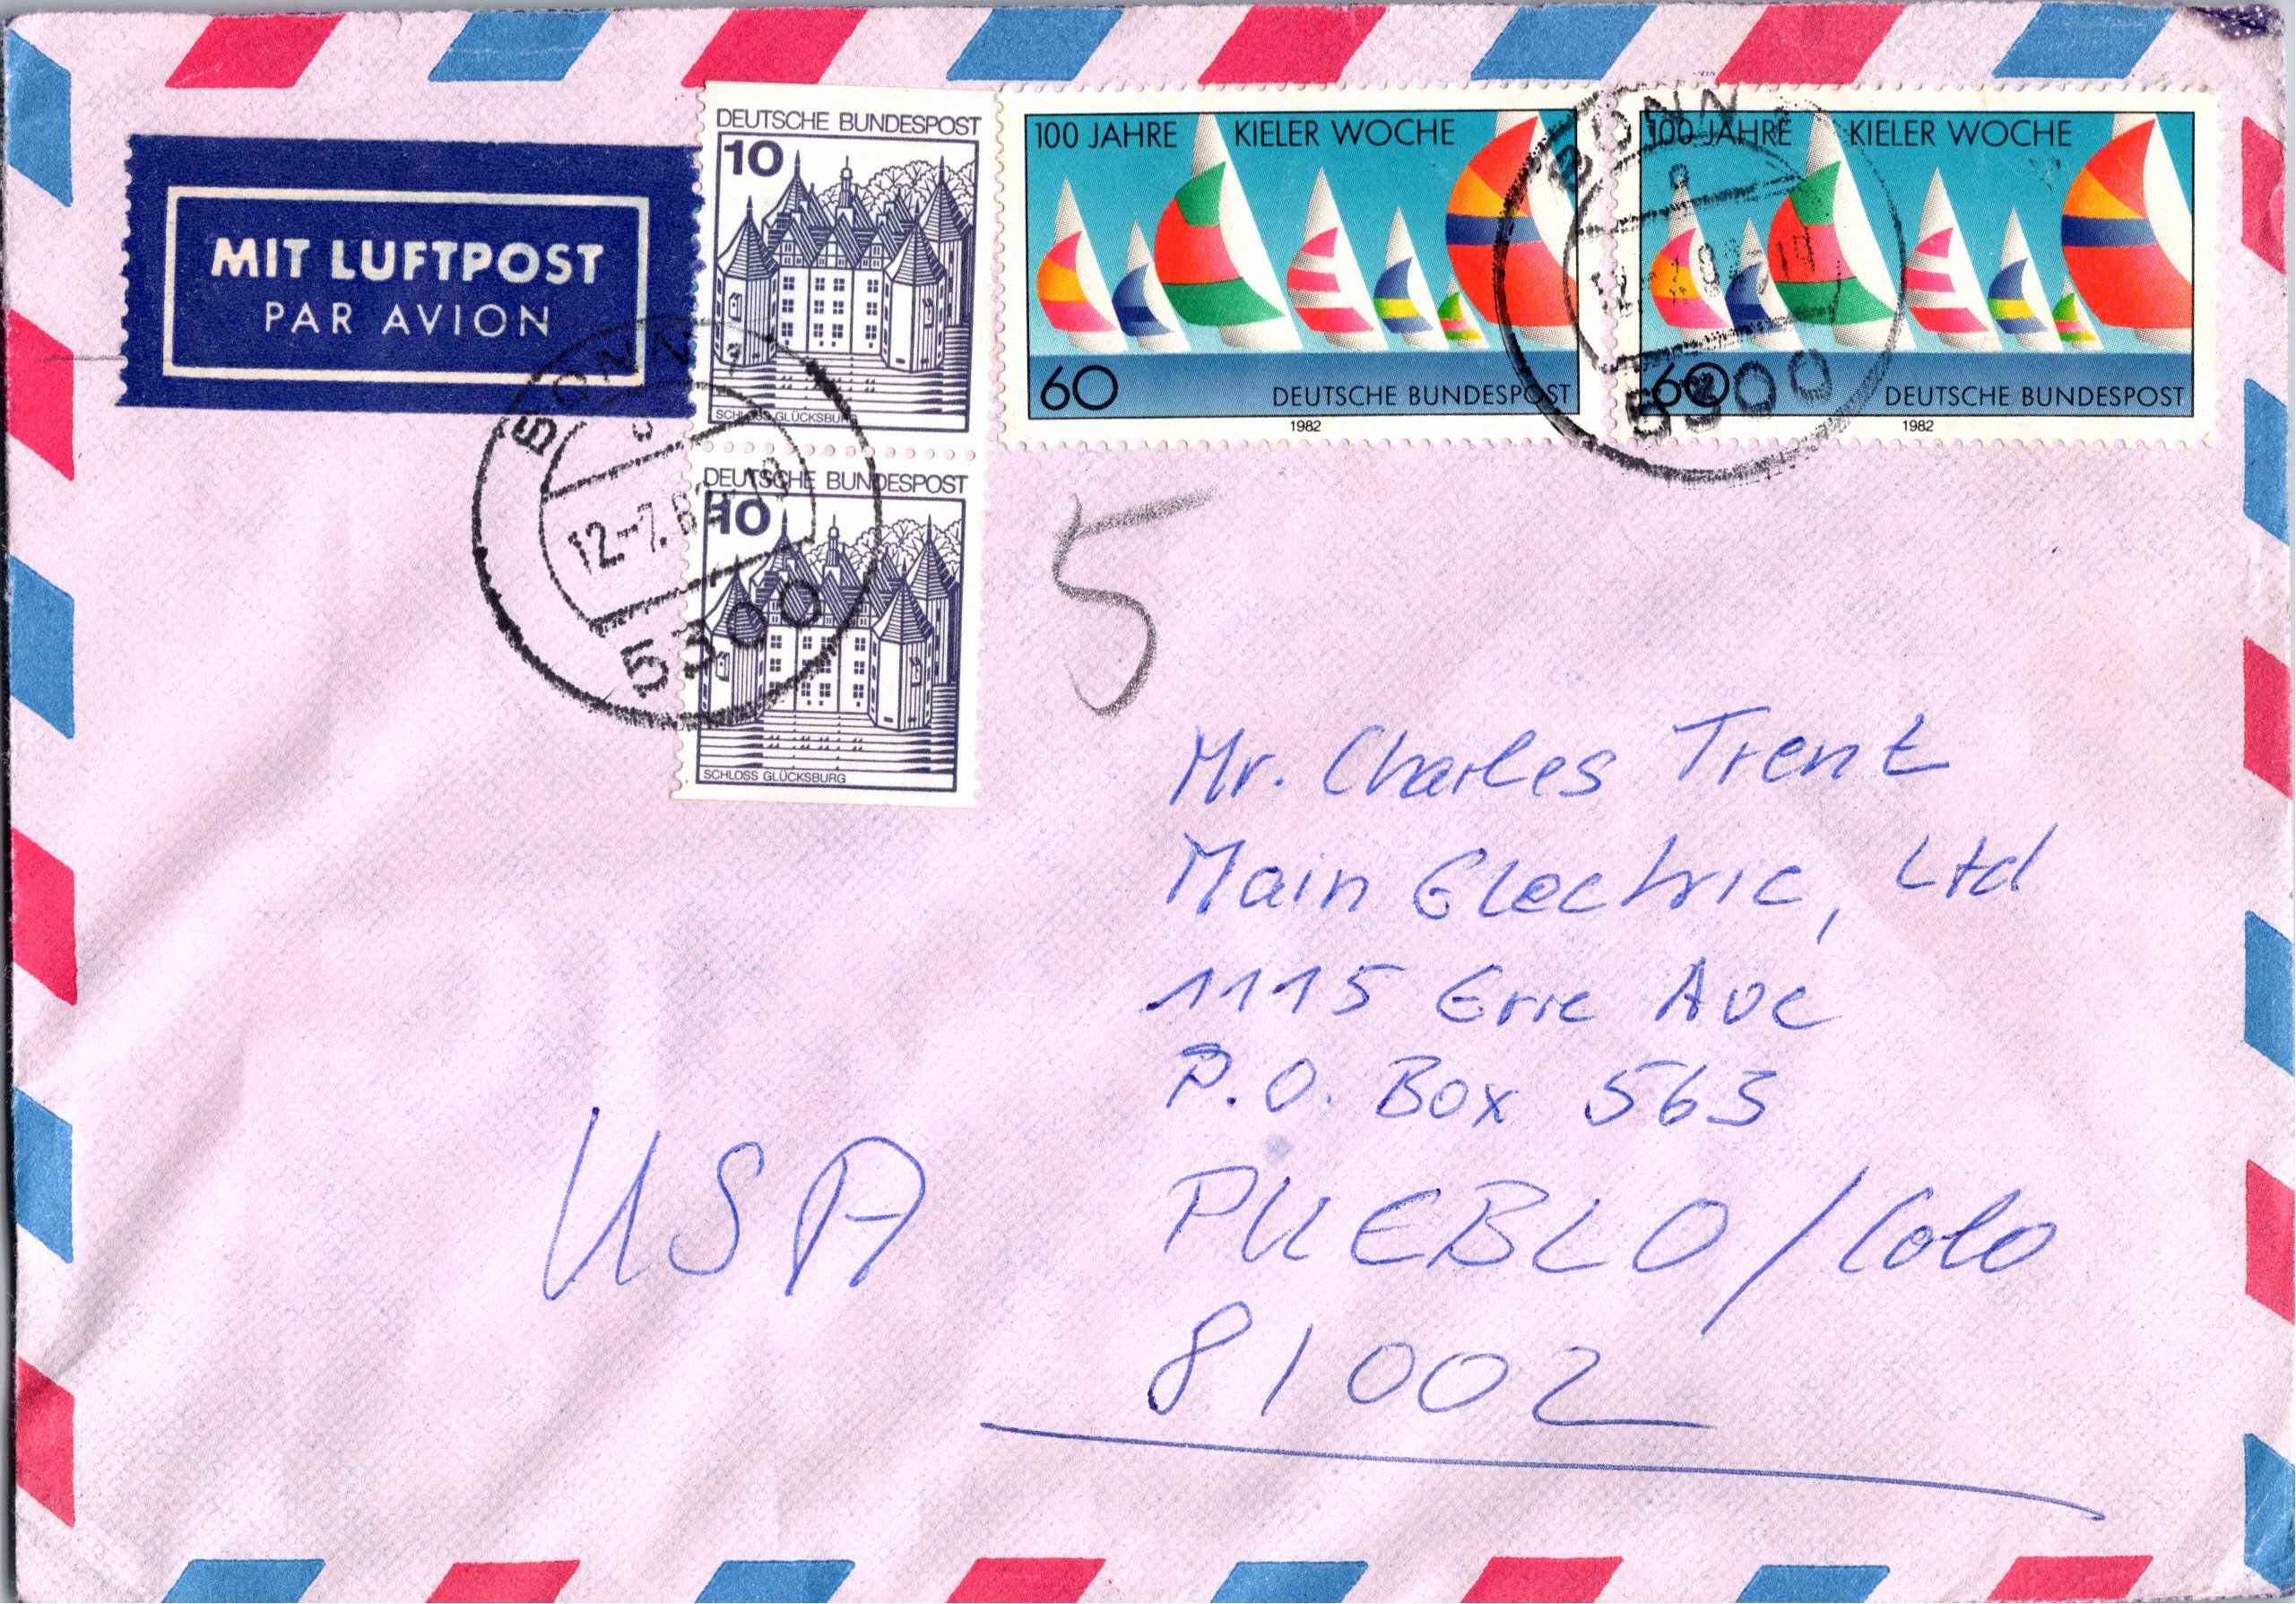 MIT LUFTPOST
PAR AVION
DEUTSCHE BUNDESPOST
10
SCHLOSS GLÜCKSBURG
DEUTSCHE BUNDESPOST
10
SCHLOSS GLÜCKSBURG
100 JAHRE KIELER WOCHE
60 DEUTSCHE BUNDESPOST
1982
100 JAHRE KIELER WOCHE
60 DEUTSCHE BUNDESPOST
1982
BONN
5300
BONN
12.-7.
5300
5
Mr. Charles Trent
Main Electric, Ltd
1115 Erie Ave
P.O. Box 563
PUEBLO/Colo
81002
USA